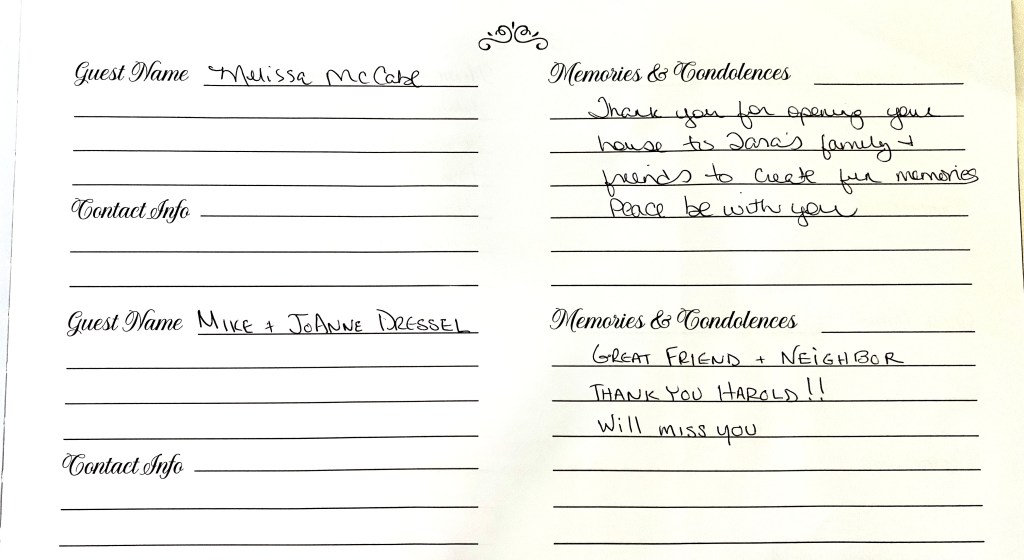 Guest Name Melissa McCabe
Memories & Condolences
Thank you for opening your
house to Tara's family +
friends to create fun memories
Peace be with you
Contact Info
Guest Name MIKE + JOANNE DRESSEL
Memories & Condolences
GREAT FRIEND + NEIGHBOR
THANK YOU HAROLD!!
Will miss you
Contact Info